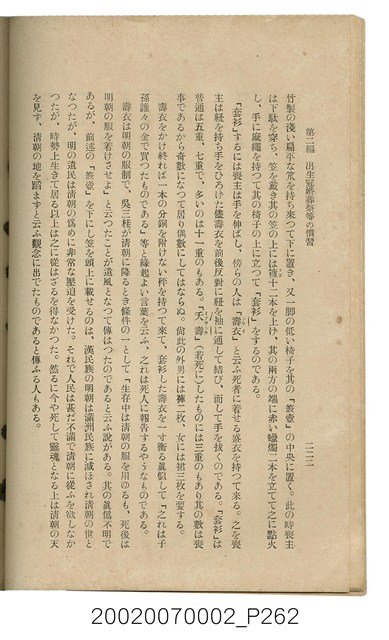 第二編 出生冠婚葬祭等の慣習
二二二
竹製の淺い扁平な笊を持ち來つて下に置き、又一脚の低い椅子を其の「簸壺」の中央に置く。此の時喪主
は下駄を穿ち、笠を戴き其の笠の上には箍十二本を上け、其の兩方の端に赤い蠟燭二本を立てて之に點火
し、手に麻繩を持つて其の椅子の上に立つて「套衫」をするのである。
「套衫」するには喪主は手を伸ばし、傍らの人は「壽衣」と云ふ死者に着せる盛衣を持つて來る。之を喪
主は紐を持ち手をひろげた儘壽衣を前後反對に紐を袖に通して結び、而して手を拔くのである。「套衫」は
普通は五重、七重で、多いのは十一重のもある。「夭壽」(若死に)したものには三重のもあり其の數は喪
事であるから奇數になつて居り偶數にしてはならぬ。尙此の外男には褲二枚、女には裙三枚を要する。
壽衣をかけ終れば一本の分銅を附けない秤を持つて來て、套衫した壽衣を一寸衡る眞似して「之れは子
孫誰々の金で買つたものである」等と緣起よい言葉を云ふ、之れは死人に報告するやうなものである。
壽衣は明朝の服制で、吳三桂が淸朝に降るとき條件の一として「生存中は淸朝の服を用ゆるも、死後は
明朝の服を着けさせよ」と云つたことが遺風となつて傳はつたのであると云ふ說がある。其の眞僞不明で
あるが、前述の「簸壺」を下にし笠を頭上に載せるのは、漢民族の明朝は滿洲民族に滅ぼされ淸朝の世と
なつたが、明の遺民は淸朝の爲めに非常な壓迫を受けた。それで人民は甚だ不滿で淸朝に從ふを欲しなか
つたが、時勢上生きて居る以上は之に從はざるを得なかつた。然るに今や死して靈魂となる上は淸朝の天
を見ず、淸朝の地を踏まずと云ふ觀念に出でたものであると傳ふる人もある。
20020070002_P262